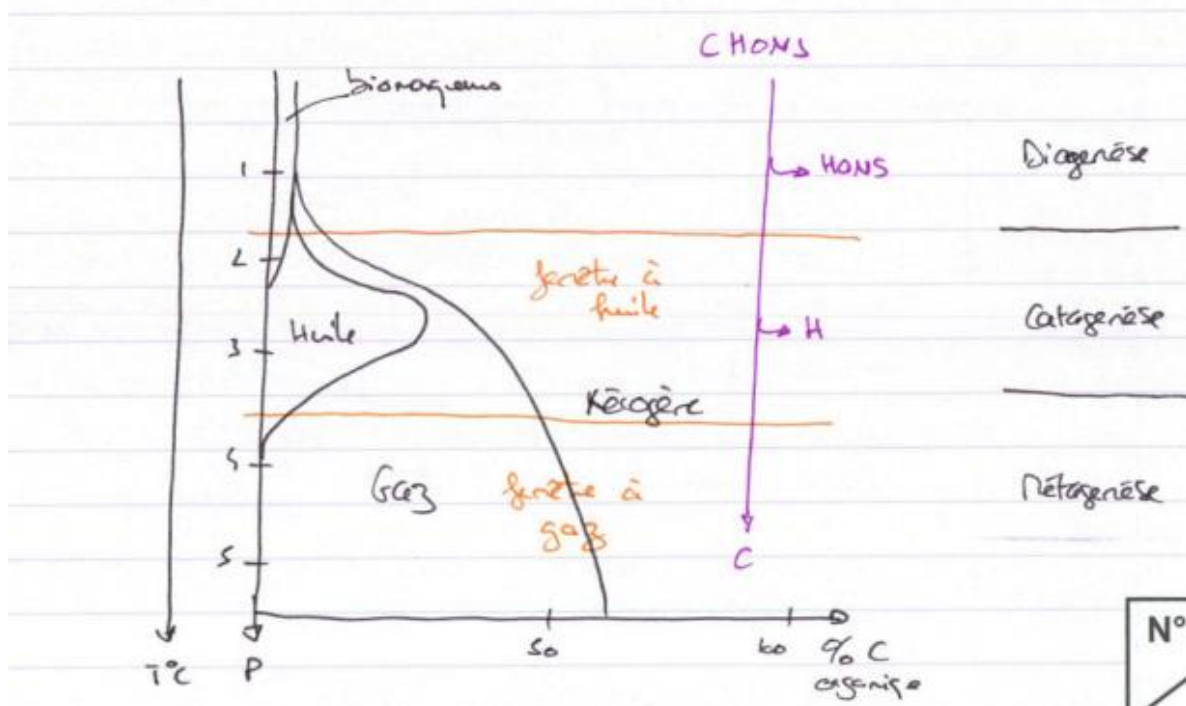 CHONS
biomarqueurs
1
HONS
Diagenèse
2
fenêtre à
huile
Huile
3
H
Catagenèse
Kérogène
4
Gaz
fenêtre à
gaz
Métagenèse
5
C
50
100
% C
organique
T°C
P
N°